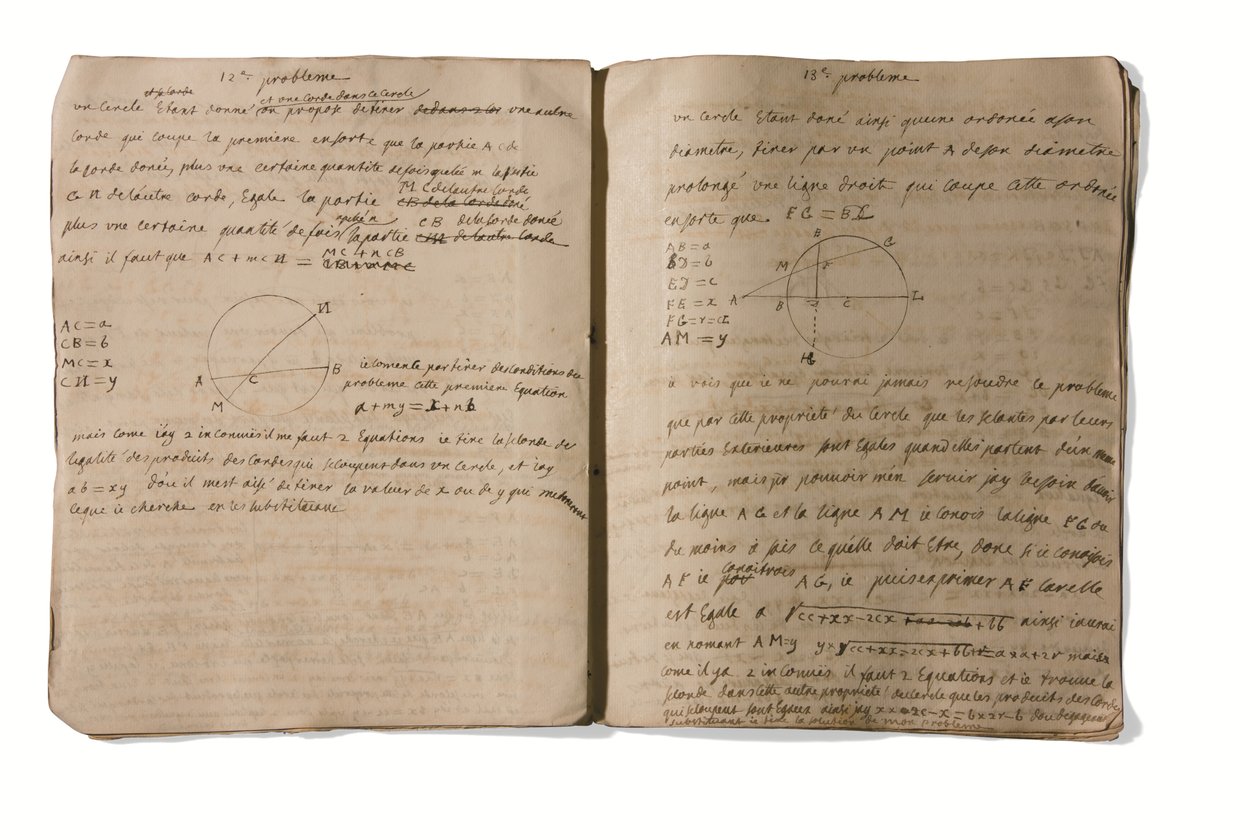 12e probleme
et une corde dans ce cercle
un cercle Etant donné on propose de tirer une autre
corde qui coupe la premiere ensorte que la partie AC de
la corde donée, plus une certaine quantité de fois m la partie
CN de lautre corde, Egale la partie MC de lautre corde
plus une certaine quantité de fois la partie CB de la corde donée
ainsi il faut que AC + mCN = MC + nCB
AC = a
CB = b
MC = x
CN = y
N
B
A
C
M
ie comence par tirer des conditions du
probleme cette premiere Equation
a + my = x + nb
mais come iay 2 inconnues il me faut 2 Equations ie tire la seconde de
legalité des produits des cordes qui se coupent dans un cercle, et iay
ab = xy dou il mest aisé de tirer la valuer de x ou de y qui me donneront
ceque ie cherche en les substituant
13e probleme
un cercle Etant doné ainsi quune ordonée a son
diametre, tirer par un point A de son diametre
prolongé une ligne droit qui coupe cette ordonée
ensorte que FG = BD
AB = a
BD = b
ED = c
FE = x
FG = r = d
AM = y
E
G
M
F
A
B
D
C
L
H
ie vois que ie ne pourai jamais resoudre ce probleme
que par cette proprieté du cercle que les secantes par leurs
parties Exterieures sont Egales quand elles partent d'un meme
point, mais pr pouvoir m'en servir jay besoin davoir
la ligne AG et la ligne AM ie conois la ligne FG ou
du moins ie sais ce qu'elle doit Etre, donc si ie conoissois
AF ie conoitrois AG, ie puis exprimer AF car elle
est Egale a √cc+xx-2cx +bb ainsi iaurai
en nomant AM=y y×√cc+xx-2cx+bb+r=a×a+2r mais
come il ya 2 inconnues il faut 2 Equations et ie trouve la
seconde dans cette autre proprieté du cercle que les produits des cordes
qui se coupent sont Egaux ainsi jay x×2c-x=b×2r-b dou degageant
substituant ie tire la solution de mon probleme